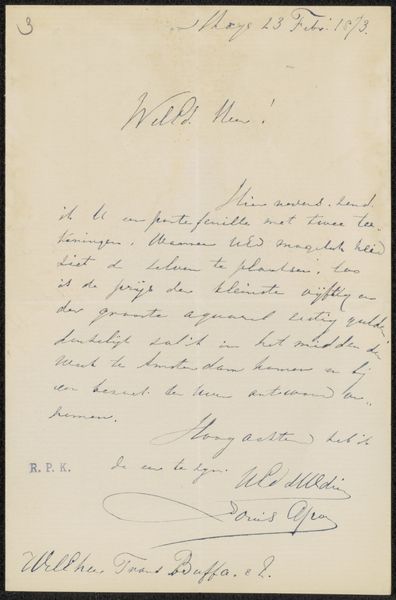 3
s Hage 23 Febr. 1873.
WelEd. Heer!
Hier nevens zend
ik U een portefeuille met twee tee-
keningen, Wanneer UEd mogelijkheid
ziet d zelven te plaatsen, zoo
is de prijs der kleinste vijftig en
der groote aquarel sestig gulden
denkelijk zal ik in het midden der
week te Amsterdam komen en bij
een bezoek ten uwen antwoord
komen.
Hoogachtend heb ik
de eer te zijn.
UEd dWDien
Louis Apol
R. P. K.
WelEd Heer Frans Buffa &